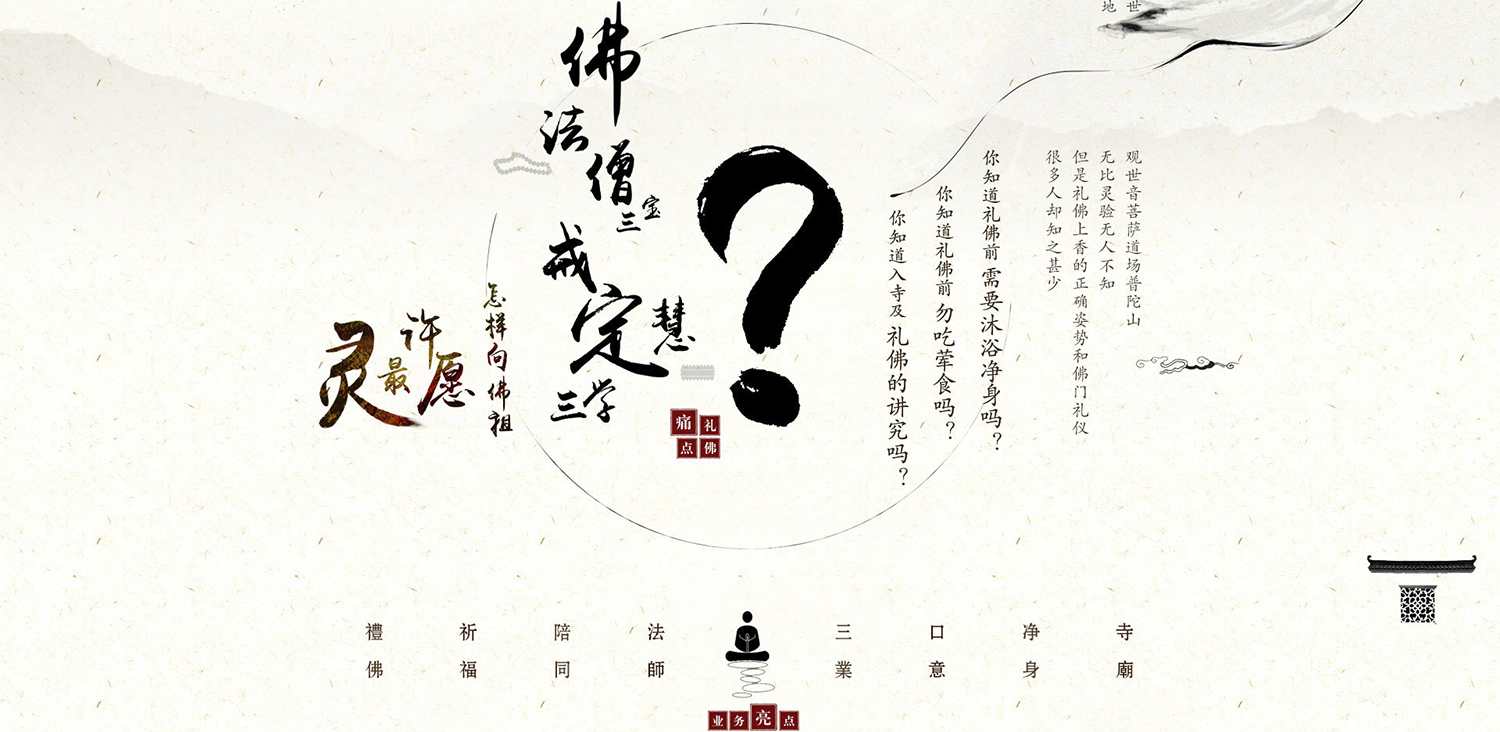 世
地
观世音菩萨道场普陀山
无比灵验无人不知
但是礼佛上香的正确姿势和佛门礼仪
很多人却知之甚少
你知道礼佛前需要沐浴净身吗？
你知道礼佛前勿吃荤食吗？
你知道入寺及礼佛的讲究吗？
?
佛法僧三宝
戒定慧三学
怎样向佛祖
许愿最灵
礼佛痛点
寺廟
净身
口意
三業
法師
陪同
祈福
禮佛
业务亮点